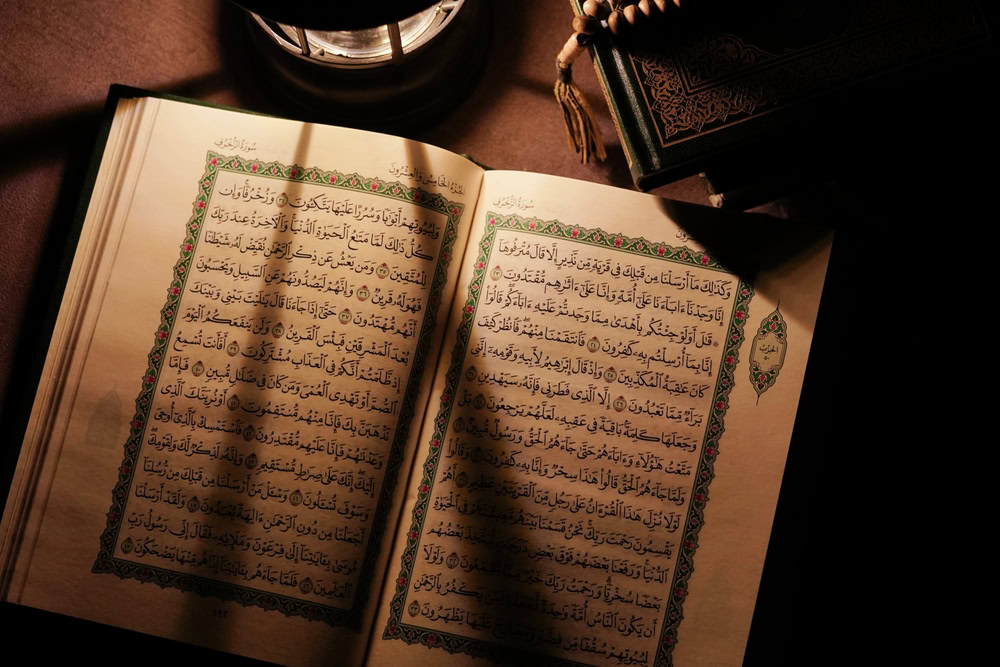 سُورَةُ الزُّخْرُفِ
وَكَذَٰلِكَ مَآ أَرْسَلْنَا مِن قَبْلِكَ فِى قَرْيَةٍ مِّن نَّذِيرٍ إِلَّا قَالَ مُتْرَفُوهَآ
إِنَّا وَجَدْنَآ ءَابَآءَنَا عَلَىٰٓ أُمَّةٍ وَإِنَّا عَلَىٰٓ ءَاثَٰرِهِم مُّقْتَدُونَ ٢٣
۞ قَٰلَ أَوَلَوْ جِئْتُكُم بِأَهْدَىٰ مِمَّا وَجَدتُّمْ عَلَيْهِ ءَابَآءَكُمْ قَالُوٓا۟
إِنَّا بِمَآ أُرْسِلْتُم بِهِۦ كَٰفِرُونَ ٢٤ فَٱنتَقَمْنَا مِنْهُمْ فَٱنظُرْ كَيْفَ
كَانَ عَٰقِبَةُ ٱلْمُكَذِّبِينَ ٢٥ وَإِذْ قَالَ إِبْرَٰهِيمُ لِأَبِيهِ وَقَوْمِهِۦٓ إِنَّنِى
بَرَآءٌ مِّمَّا تَعْبُدُونَ ٢٦ إِلَّا ٱلَّذِى فَطَرَنِى فَإِنَّهُۥ سَيَهْدِينِ ٢٧
وَجَعَلَهَا كَلِمَةًۢ بَاقِيَةً فِى عَقِبِهِۦ لَعَلَّهُمْ يَرْجِعُونَ ٢٨ بَلْ
مَتَّعْتُ هَٰٓؤُلَآءِ وَءَابَآءَهُمْ حَتَّىٰ جَآءَهُمُ ٱلْحَقُّ وَرَسُولٌ مُّبِينٌ ٢٩
وَلَمَّا جَآءَهُمُ ٱلْحَقُّ قَالُوا۟ هَٰذَا سِحْرٌ وَإِنَّا بِهِۦ كَٰفِرُونَ ٣٠ وَقَالُوا۟
لَوْلَا نُزِّلَ هَٰذَا ٱلْقُرْءَانُ عَلَىٰ رَجُلٍ مِّنَ ٱلْقَرْيَتَيْنِ عَظِيمٍ ٣١ أَهُمْ
يَقْسِمُونَ رَحْمَتَ رَبِّكَ نَحْنُ قَسَمْنَا بَيْنَهُم مَّعِيشَتَهُمْ فِى ٱلْحَيَوٰةِ
ٱلدُّنْيَا وَرَفَعْنَا بَعْضَهُمْ فَوْقَ بَعْضٍ دَرَجَٰتٍ لِّيَتَّخِذَ بَعْضُهُم
بَعْضًا سُخْرِيًّا وَرَحْمَتُ رَبِّكَ خَيْرٌ مِّمَّا يَجْمَعُونَ ٣٢ وَلَوْلَآ
أَن يَكُونَ ٱلنَّاسُ أُمَّةً وَٰحِدَةً لَّجَعَلْنَا لِمَن يَكْفُرُ بِٱلرَّحْمَٰنِ
لِبُيُوتِهِمْ سُقُفًا مِّن فِضَّةٍ وَمَعَارِجَ عَلَيْهَا يَظْهَرُونَ ٣٣
الحِزْبُ
٥٠
الجُزْءُ الخَامِسُ وَالعِشْرُونَ
سُورَةُ الزُّخْرُفِ
وَلِبُيُوتِهِمْ أَبْوَٰبًا وَسُرُرًا عَلَيْهَا يَتَّكِـُٔونَ ٣٤ وَزُخْرُفًا وَإِن
كُلُّ ذَٰلِكَ لَمَّا مَتَٰعُ ٱلْحَيَوٰةِ ٱلدُّنْيَا وَٱلْءَاخِرَةُ عِندَ رَبِّكَ
لِلْمُتَّقِينَ ٣٥ وَمَن يَعْشُ عَن ذِكْرِ ٱلرَّحْمَٰنِ نُقَيِّضْ لَهُۥ شَيْطَٰنًا
فَهُوَ لَهُۥ قَرِينٌ ٣٦ وَإِنَّهُمْ لَيَصُدُّونَهُمْ عَنِ ٱلسَّبِيلِ وَيَحْسَبُونَ
أَنَّهُم مُّهْتَدُونَ ٣٧ حَتَّىٰٓ إِذَا جَآءَنَا قَالَ يَٰلَيْتَ بَيْنِى وَبَيْنَكَ
بُعْدَ ٱلْمَشْرِقَيْنِ فَبِئْسَ ٱلْقَرِينُ ٣٨ وَلَن يَنفَعَكُمُ ٱلْيَوْمَ
إِذ ظَّلَمْتُمْ أَنَّكُمْ فِى ٱلْعَذَابِ مُشْتَرِكُونَ ٣٩ أَفَأَنتَ تُسْمِعُ
ٱلصُّمَّ أَوْ تَهْدِى ٱلْعُمْىَ وَمَن كَانَ فِى ضَلَٰلٍ مُّبِينٍ ٤٠ فَإِمَّا
نَذْهَبَنَّ بِكَ فَإِنَّا مِنْهُم مُّنتَقِمُونَ ٤١ أَوْ نُرِيَنَّكَ ٱلَّذِى
وَعَدْنَٰهُمْ فَإِنَّا عَلَيْهِم مُّقْتَدِرُونَ ٤٢ فَٱسْتَمْسِكْ بِٱلَّذِىٓ أُوحِىَ
إِلَيْكَ إِنَّكَ عَلَىٰ صِرَٰطٍ مُّسْتَقِيمٍ ٤٣ وَإِنَّهُۥ لَذِكْرٌ لَّكَ وَلِقَوْمِكَ
وَسَوْفَ تُسْـَٔلُونَ ٤٤ وَسْـَٔلْ مَنْ أَرْسَلْنَا مِن قَبْلِكَ مِن رُّسُلِنَآ
أَجَعَلْنَا مِن دُونِ ٱلرَّحْمَٰنِ ءَالِهَةً يُعْبَدُونَ ٤٥ وَلَقَدْ أَرْسَلْنَا
مُوسَىٰ بِـَٔايَٰتِنَآ إِلَىٰ فِرْعَوْنَ وَمَلَإِي۟هِۦ فَقَالَ إِنِّى رَسُولُ رَبِّ
ٱلْعَٰلَمِينَ ٤٦ فَلَمَّا جَآءَهُم بِـَٔايَٰتِنَآ إِذَا هُم مِّنْهَا يَضْحَكُونَ ٤٧
٤٩٢